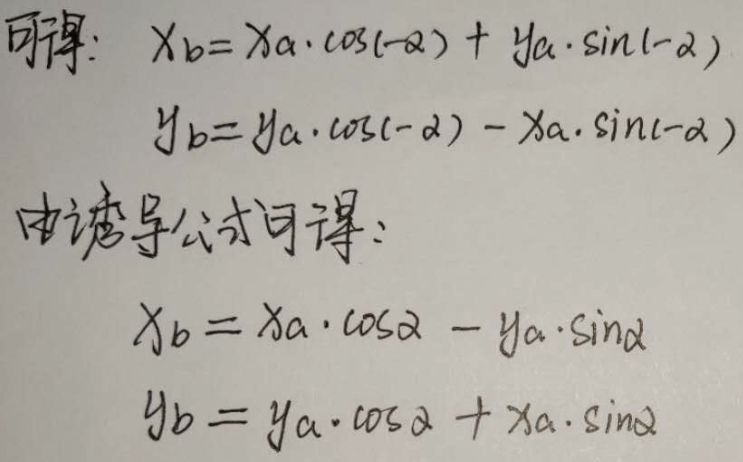 可得: xb = xa·cos(-α) + ya·sin(-α)
yb = ya·cos(-α) - xa·sin(-α)
由诱导公式可得:
xb = xa·cosα - ya·sinα
yb = ya·cosα + xa·sinα